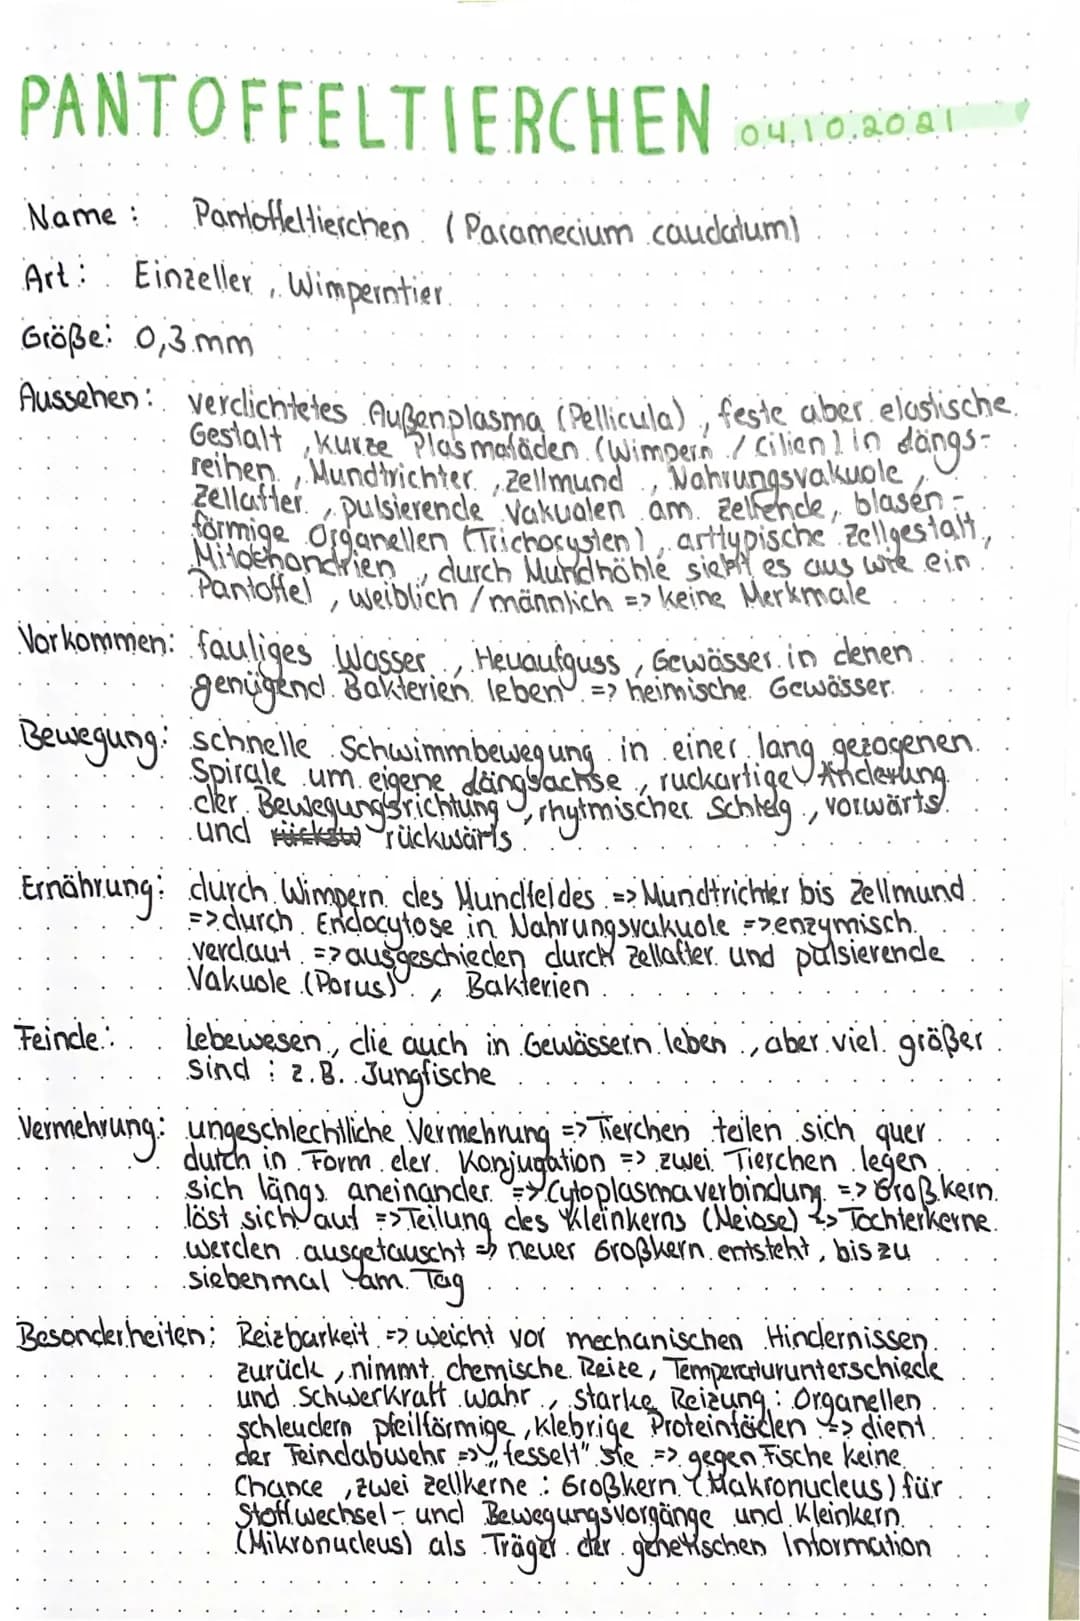 PANTOFFELTIERCHEN 04.10.2021
Name: Pantoffeltierchen (Paramecium caudatum)
Art: Einzeller, Wimperntier
Größe: 0,3 mm
Aussehen: verdichtetes Außenplasma (Pellicula), feste aber elastische
Gestalt, kurze Plasmafäden (Wimpern / Cilien) in Längs-
reihen, Mundtrichter, Zellmund, Nahrungsvakuole,
Zellafter, pulsierende Vakuolen am Zellende, blasen-
förmige Organellen (Trichocysten), arttypische Zellgestalt,
Mitochondrien, durch Mundhöhle sieht es aus wie ein
Pantoffel, weiblich / männlich => keine Merkmale
Vorkommen: fauliges Wasser, Heuaufguss, Gewässer in denen
genügend Bakterien leben => heimische Gewässer
Bewegung: schnelle Schwimmbewegung in einer lang gezogenen
Spirale um eigene Längsachse, ruckartige Änderung
der Bewegungsrichtung, rhytmischer Schlag, vorwärts
und rückwärts
Ernährung: durch Wimpern des Mundfeldes => Mundtrichter bis Zellmund
=> durch Endocytose in Nahrungsvakuole => enzymisch
verdaut => ausgeschieden durch Zellafter und pulsierende
Vakuole (Porus), Bakterien
Feinde: Lebewesen, die auch in Gewässern leben, aber viel größer
sind : z.B. Jungfische
Vermehrung: ungeschlechtliche Vermehrung => Tierchen teilen sich quer
durch in Form der Konjugation => zwei Tierchen legen
sich längs aneinander => Cytoplasmaverbindung => Großkern
löst sich auf => Teilung des Kleinkerns (Meiose) => Tochterkerne
werden ausgetauscht => neuer Großkern entsteht, bis zu
siebenmal am Tag
Besonderheiten: Reizbarkeit => weicht vor mechanischen Hindernissen
zurück, nimmt chemische Reize, Temperaturunterschiede
und Schwerkraft wahr, starke Reizung: Organellen
schleudern pfeilförmige, klebrige Proteinfäden => dient
der Feindabwehr => „fesselt" sie => gegen Fische keine
Chance, zwei Zellkerne : Großkern (Makronucleus) für
Stoffwechsel- und Bewegungsvorgänge und Kleinkern
(Mikronucleus) als Träger der genetischen Information